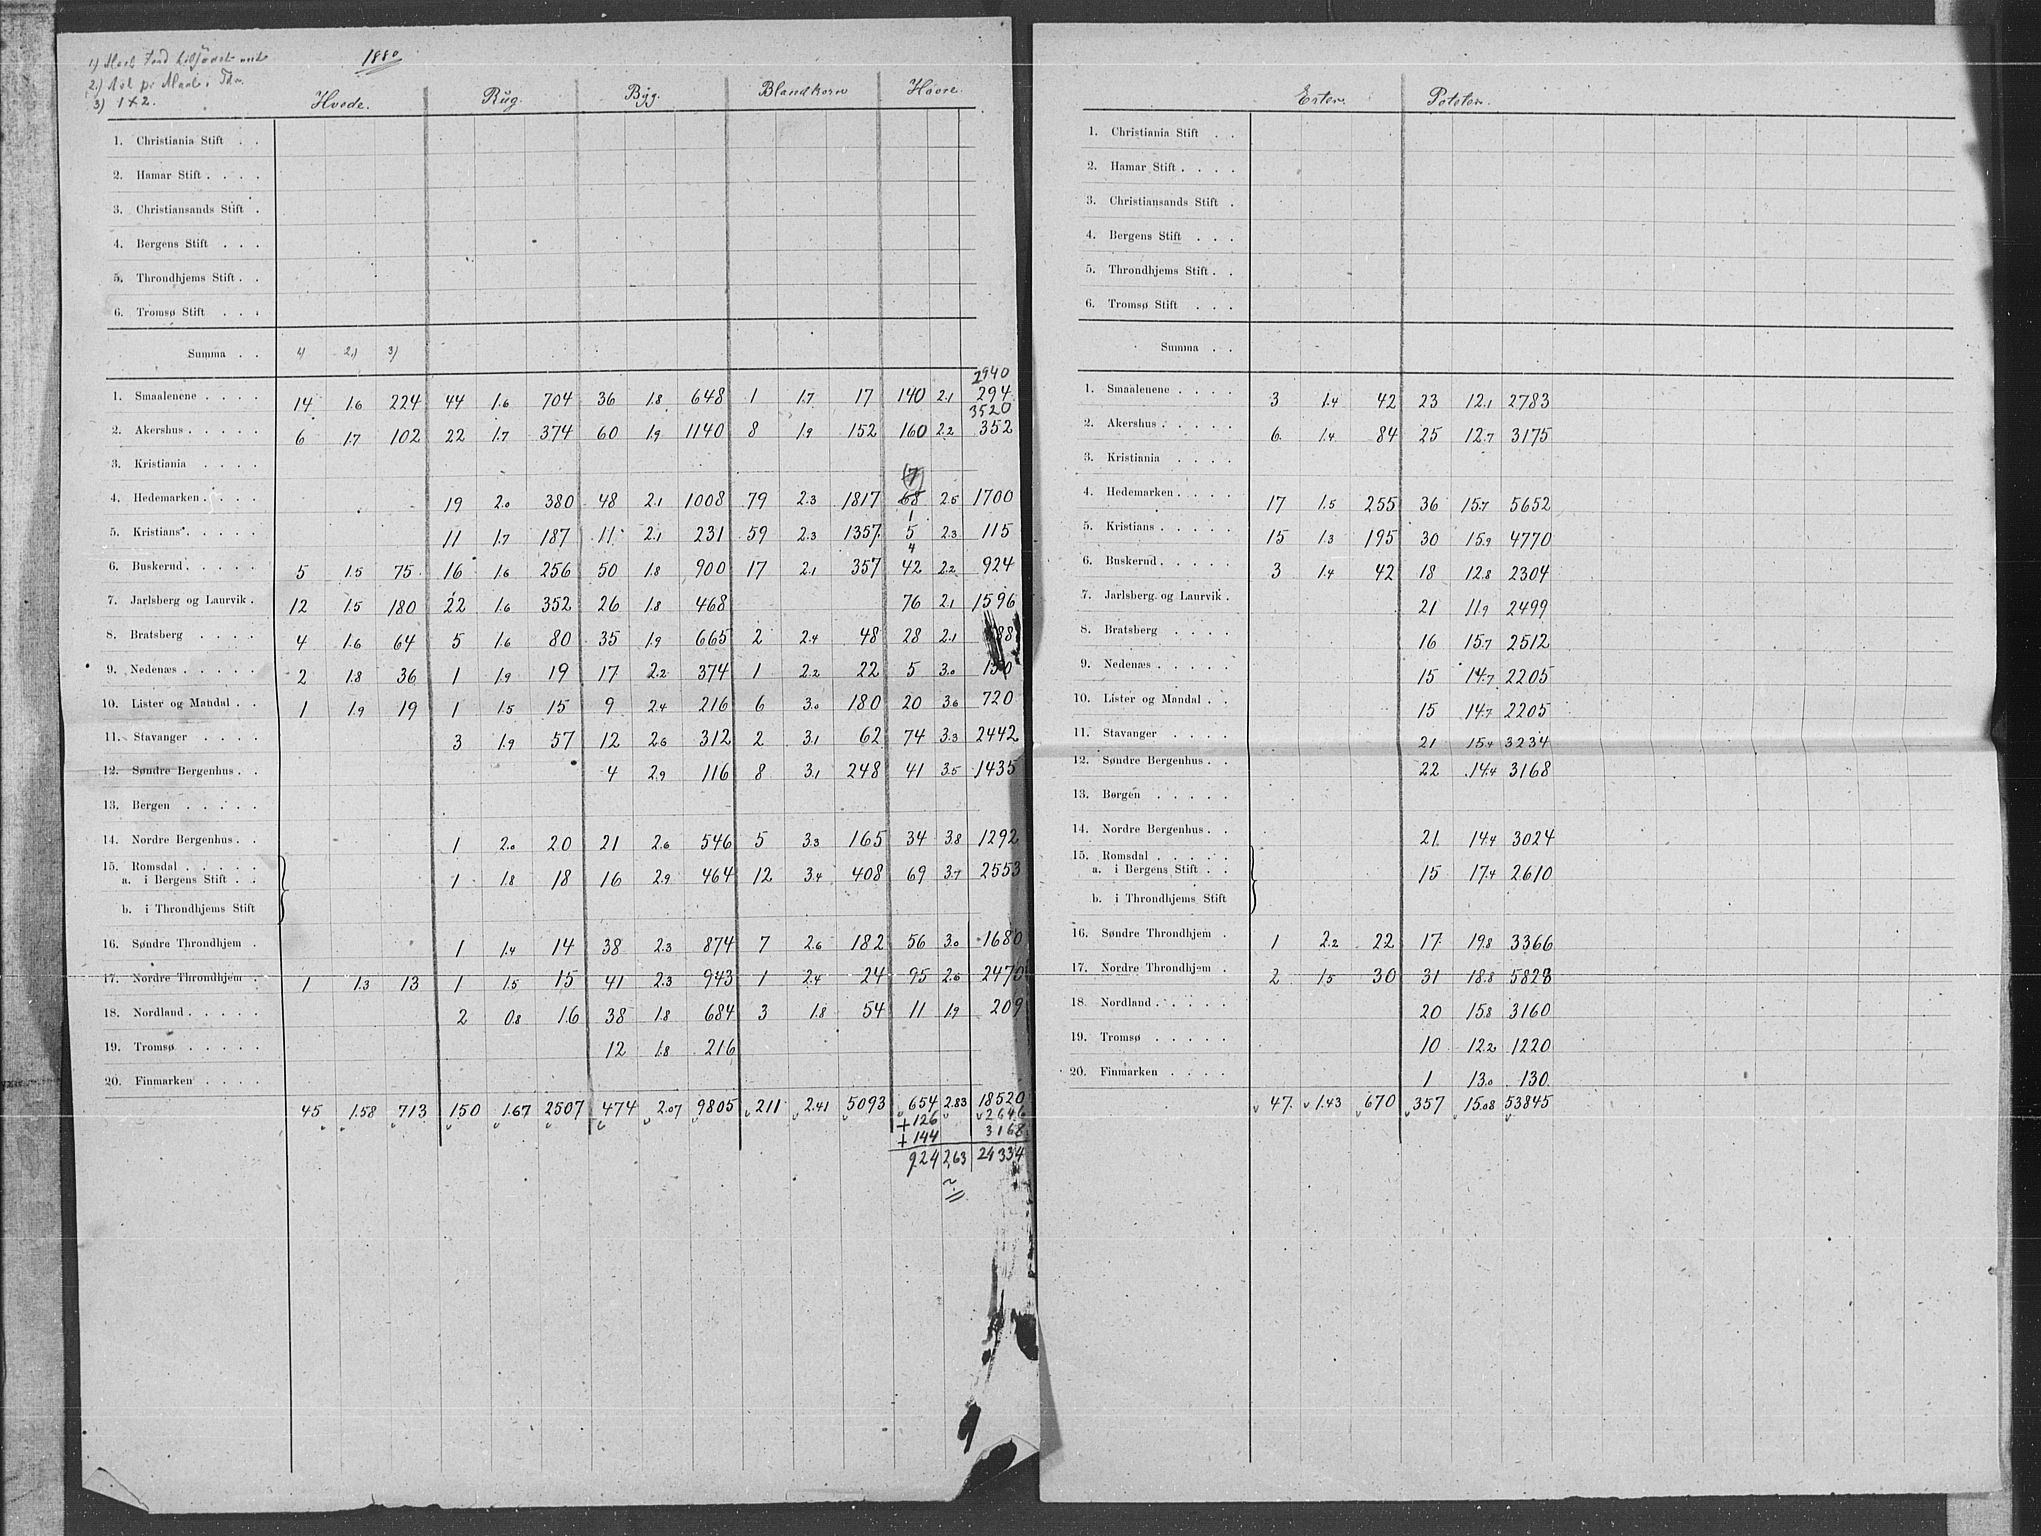 1880
3) 1 x 2.
Hvede. Rug. Byg. Blandkorn Havre. Erter. Poteter.
1. Christiania Stift . .
2. Hamar Stift . . . .
3. Christiansands Stift .
4. Bergens Stift . . .
5. Throndhjems Stift . .
6. Tromsø Stift . . .
Summa . . 1) 2.) 3)
2940
1. Smaalenene . . . . 14 1.6 224 44 1.6 704 36 1.8 648 1 1.7 17 140 2.1 294
3520
2. Akershus . . . . . 6 1.7 102 22 1.7 374 60 1.9 1140 8 1.9 152 160 2.2 352
3. Kristiania . . . .
7
4. Hedemarken . . . . 19 2.0 380 48 2.1 1008 79 2.3 1817 68 2.5 1700
1
5. Kristians . . . . . 11 1.7 187 11 2.1 231 59 2.3 1357 5 2.3 115
4
6. Buskerud . . . . . 5 1.5 75 16 1.6 256 50 1.8 900 17 2.1 357 42 2.2 924
7. Jarlsberg og Laurvik . 12 1.5 180 22 1.6 352 26 1.8 468 76 2.1 1596
8. Bratsberg . . . . 4 1.6 64 5 1.6 80 35 1.9 665 2 2.4 48 28 2.1
9. Nedenæs . . . . . 2 1.8 36 1 1.9 19 17 2.2 374 1 2.2 22 5 3.0 150
10. Lister og Mandal . . 1 1.9 19 1 1.5 15 9 2.4 216 6 3.0 180 20 3.6 720
11. Stavanger . . . . 3 1.9 57 12 2.6 312 2 3.1 62 74 3.3 2442
12. Søndre Bergenhus . . 4 2.9 116 8 3.1 248 41 3.5 1435
13. Bergen . . . . .
14. Nordre Bergenhus . . 1 2.0 20 21 2.6 546 5 3.3 165 34 3.8 1292
15. Romsdal . . . . .
a. i Bergens Stift . . 1 1.8 18 16 2.9 464 12 3.4 408 69 3.7 2553
b. i Throndhjems Stift
16. Søndre Throndhjem . 1 1.4 14 38 2.3 874 7 2.6 182 56 3.0 1680
17. Nordre Throndhjem . 1 1.3 13 1 1.5 15 41 2.3 943 1 2.4 24 95 2.6 2470
18. Nordland . . . . . 2 0.8 1.6 38 1.8 684 3 1.8 54 11 1.9 209
19. Tromsø . . . . . 12 1.8 216
20. Finmarken . . . .
45 1.58 713 150 1.67 2507 474 2.07 9805 211 2.41 5093 654 2.83 18520
+ 126 2646
+ 144 3168
924 2,63 24334
1. Christiania Stift . .
2. Hamar Stift . . . .
3. Christiansands Stift .
4. Bergens Stift . . .
5. Throndhjems Stift . .
6. Tromsø Stift . . .
Summa . .
1. Smaalenene . . . . 3 1.4 42 23 12.1 2783
2. Akershus . . . . . 6 1.4 84 25 12.7 3175
3. Kristiania . . . .
4. Hedemarken . . . . 17 1.5 255 36 15.7 5652
5. Kristians . . . . . 15 1.3 195 30 15.9 4770
6. Buskerud . . . . . 3 1.4 42 18 12.8 2304
7. Jarlsberg og Laurvik . 21 11.9 2499
8. Bratsberg . . . . 16 15.7 2512
9. Nedenæs . . . . . 15 14.7 2205
10. Lister og Mandal . . 15 14.7 2205
11. Stavanger . . . . 21 15.4 3234
12. Søndre Bergenhus . . 22 14.4 3168
13. Bergen . . . . .
14. Nordre Bergenhus . . 21 14.4 3024
15. Romsdal . . . . .
a. i Bergens Stift . . 15 17.4 2610
b. i Throndhjems Stift
16. Søndre Throndhjem . 1 2.2 22 17 19.8 3366
17. Nordre Throndhjem . 2 1.5 30 31 18.8 5828
18. Nordland . . . . . 20 15.8 3160
19. Tromsø . . . . . 10 12.2 1220
20. Finmarken . . . . 1 13.0 130
47 1.43 670 357 15.08 53845